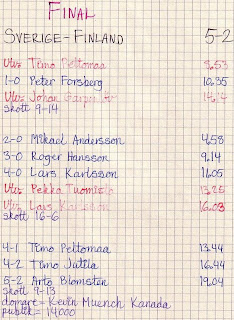 FINAL
SVERIGE-FINLAND 5-2
Utv: Timo Peltomaa 8.53
1-0 Peter Forsberg 10.35
Utv: Johan 14.14
skott 9-14
2-0 Mikael Andersson 4.58
3-0 Roger Hansson 9.14
4-0 Lars Karlsson 11.05
Utv: Pekka Tuomisto 13.25
Utv: Lars Karlsson 16.03
skott 16-6
4-1 Timo Peltomaa 13.44
4-2 Timo Jutila 16.44
5-2 Arto Blomsten 19.04
skott 9-13
domare= Kevin Muench Kanada
publik= 14000